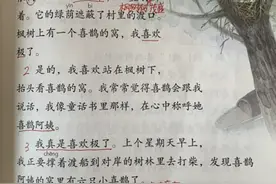 着。它的绿荫遮蔽了村里的渡口
枫树上有一个喜鹊的窝，我喜欢
极了。
2 是的，我喜欢站在枫树下，
抬头看喜鹊的窝。我常常觉得喜鹊会跟我
说话，我像童话书里那样，在心中称呼她
喜鹊阿姨。
3 我真是喜欢极了。上个星期天早上，
chēng
我正要撑着渡船到对岸的树林里去打柴，发现喜鹊
阿姨的窝里有六只小喜鹊了